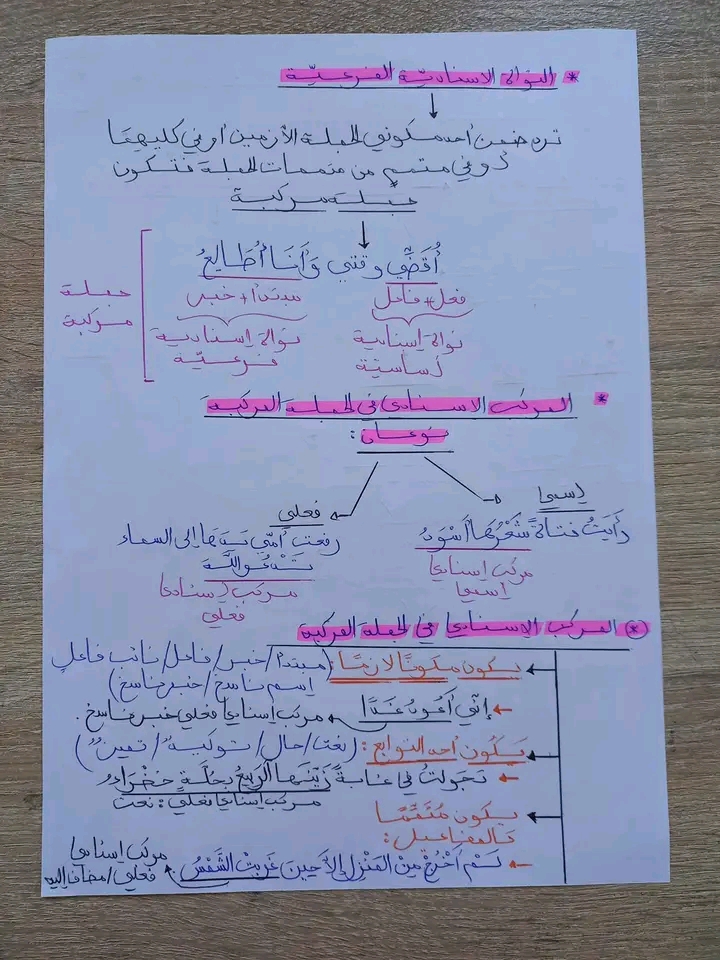 * النواة الاسنادية الفرعيّة
ترد ضمن أحد مكوني الجملة الأزمين أو في كليهما
أو في متمم من متممات الجملة فتكون
جملة مركبة
أُقَضِّي وقتي وَأَنَا أُطَالِعُ
فعل + فاعل
مبتدأ + خبر
نواة إسنادية
أساسيّة
نواة إسنادية
فرعيّة
جملة
مركبة
* المركب الاسنادي في الجملة المركبة
نوعان:
إسمي
رَأَيْتُ فتاةً شَعْرُهَا أَسْوَدُ
مركب إسنادي
اسمي
فعلي
رفعت أمّي يَدَهَا إلى السماء
تَدْعُو اللَّهَ
مركب إسنادي
فعلي
* المركب الاسنادي في الجملة المركبة
يكون مكونًا لازمًا: (مبتدأ/خبر/فاعل/نائب فاعل
اسم ناسخ/خبر ناسخ)
إنّي أَعُودُ غَدًا مركب إسنادي فعلي خبر ناسخ.
يَكُون أحد التوابع: (نعت/حال/توكيد/تمييز)
تجولتُ في غابةً زَيَّنَهَا الرَّبيعُ بحُلَّةٍ خَضْرَاء
مركب إسنادي فعلي: نعت
يكون مُتَمِّمًا
كالمفاعيل:
لَمْ أَخْرُجْ مِنَ المَنْزِلِ إلاَّ حِينَ غَرَبَتْ الشَّمْسُ
مركب إسنادي
فعلي/مضاف إليه